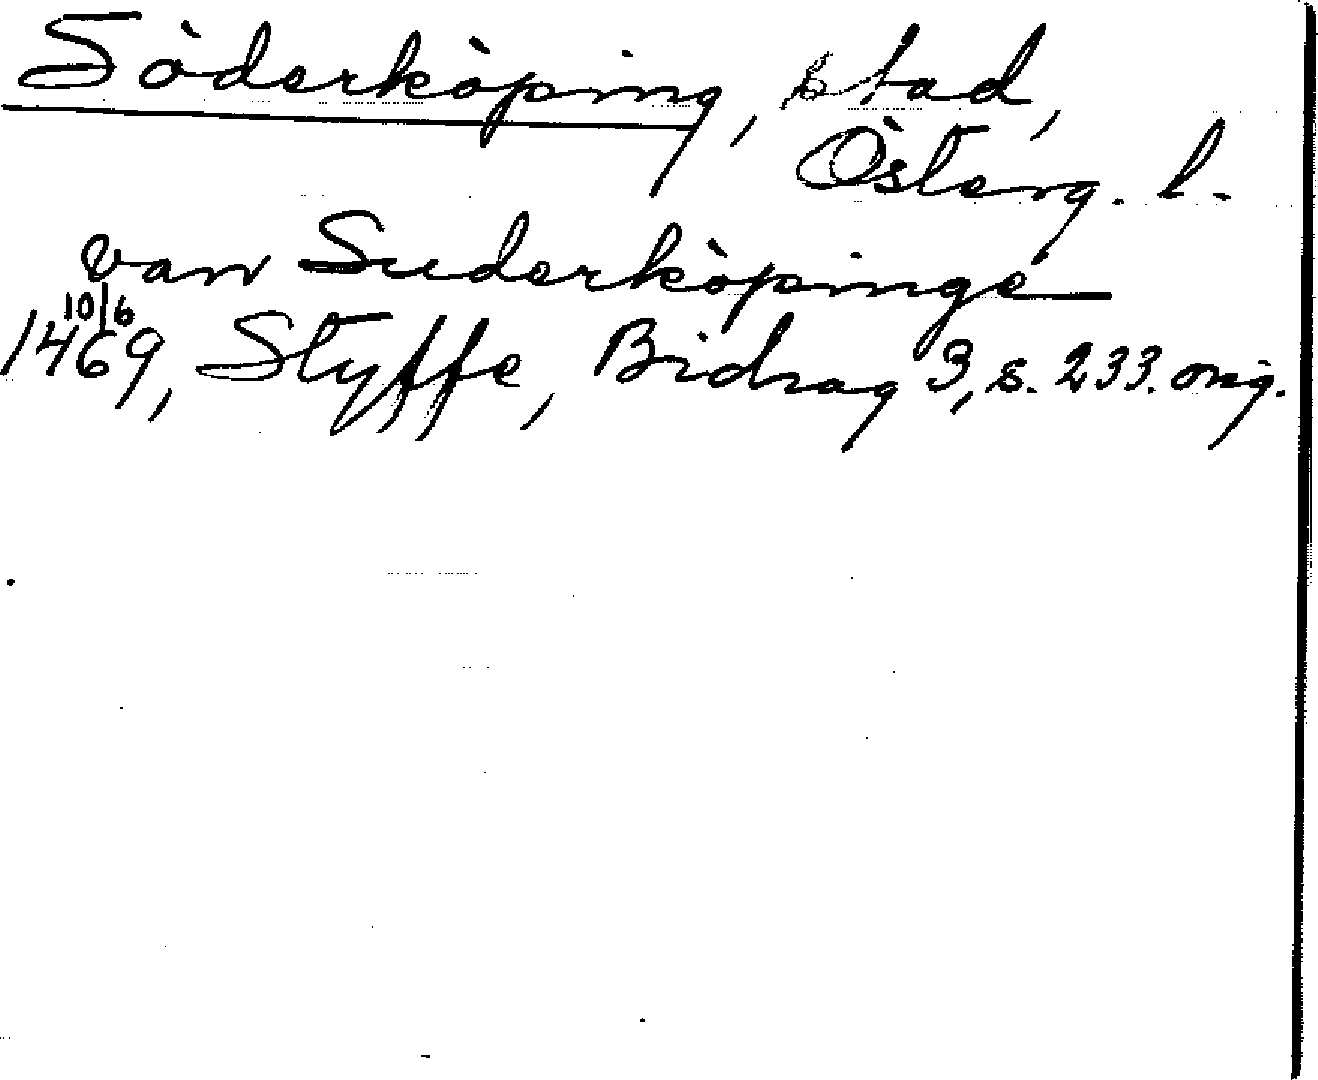 Söderköping, stad,
Österg. l.
van Suderköpinge
10/6
1469, Styffe, Bidrag 3, s. 233. orig.